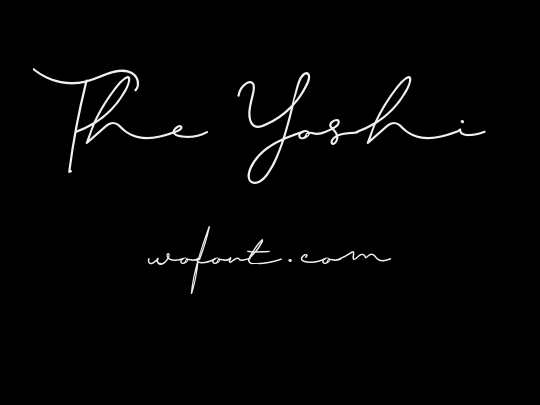 The Yoshi
wofont.com